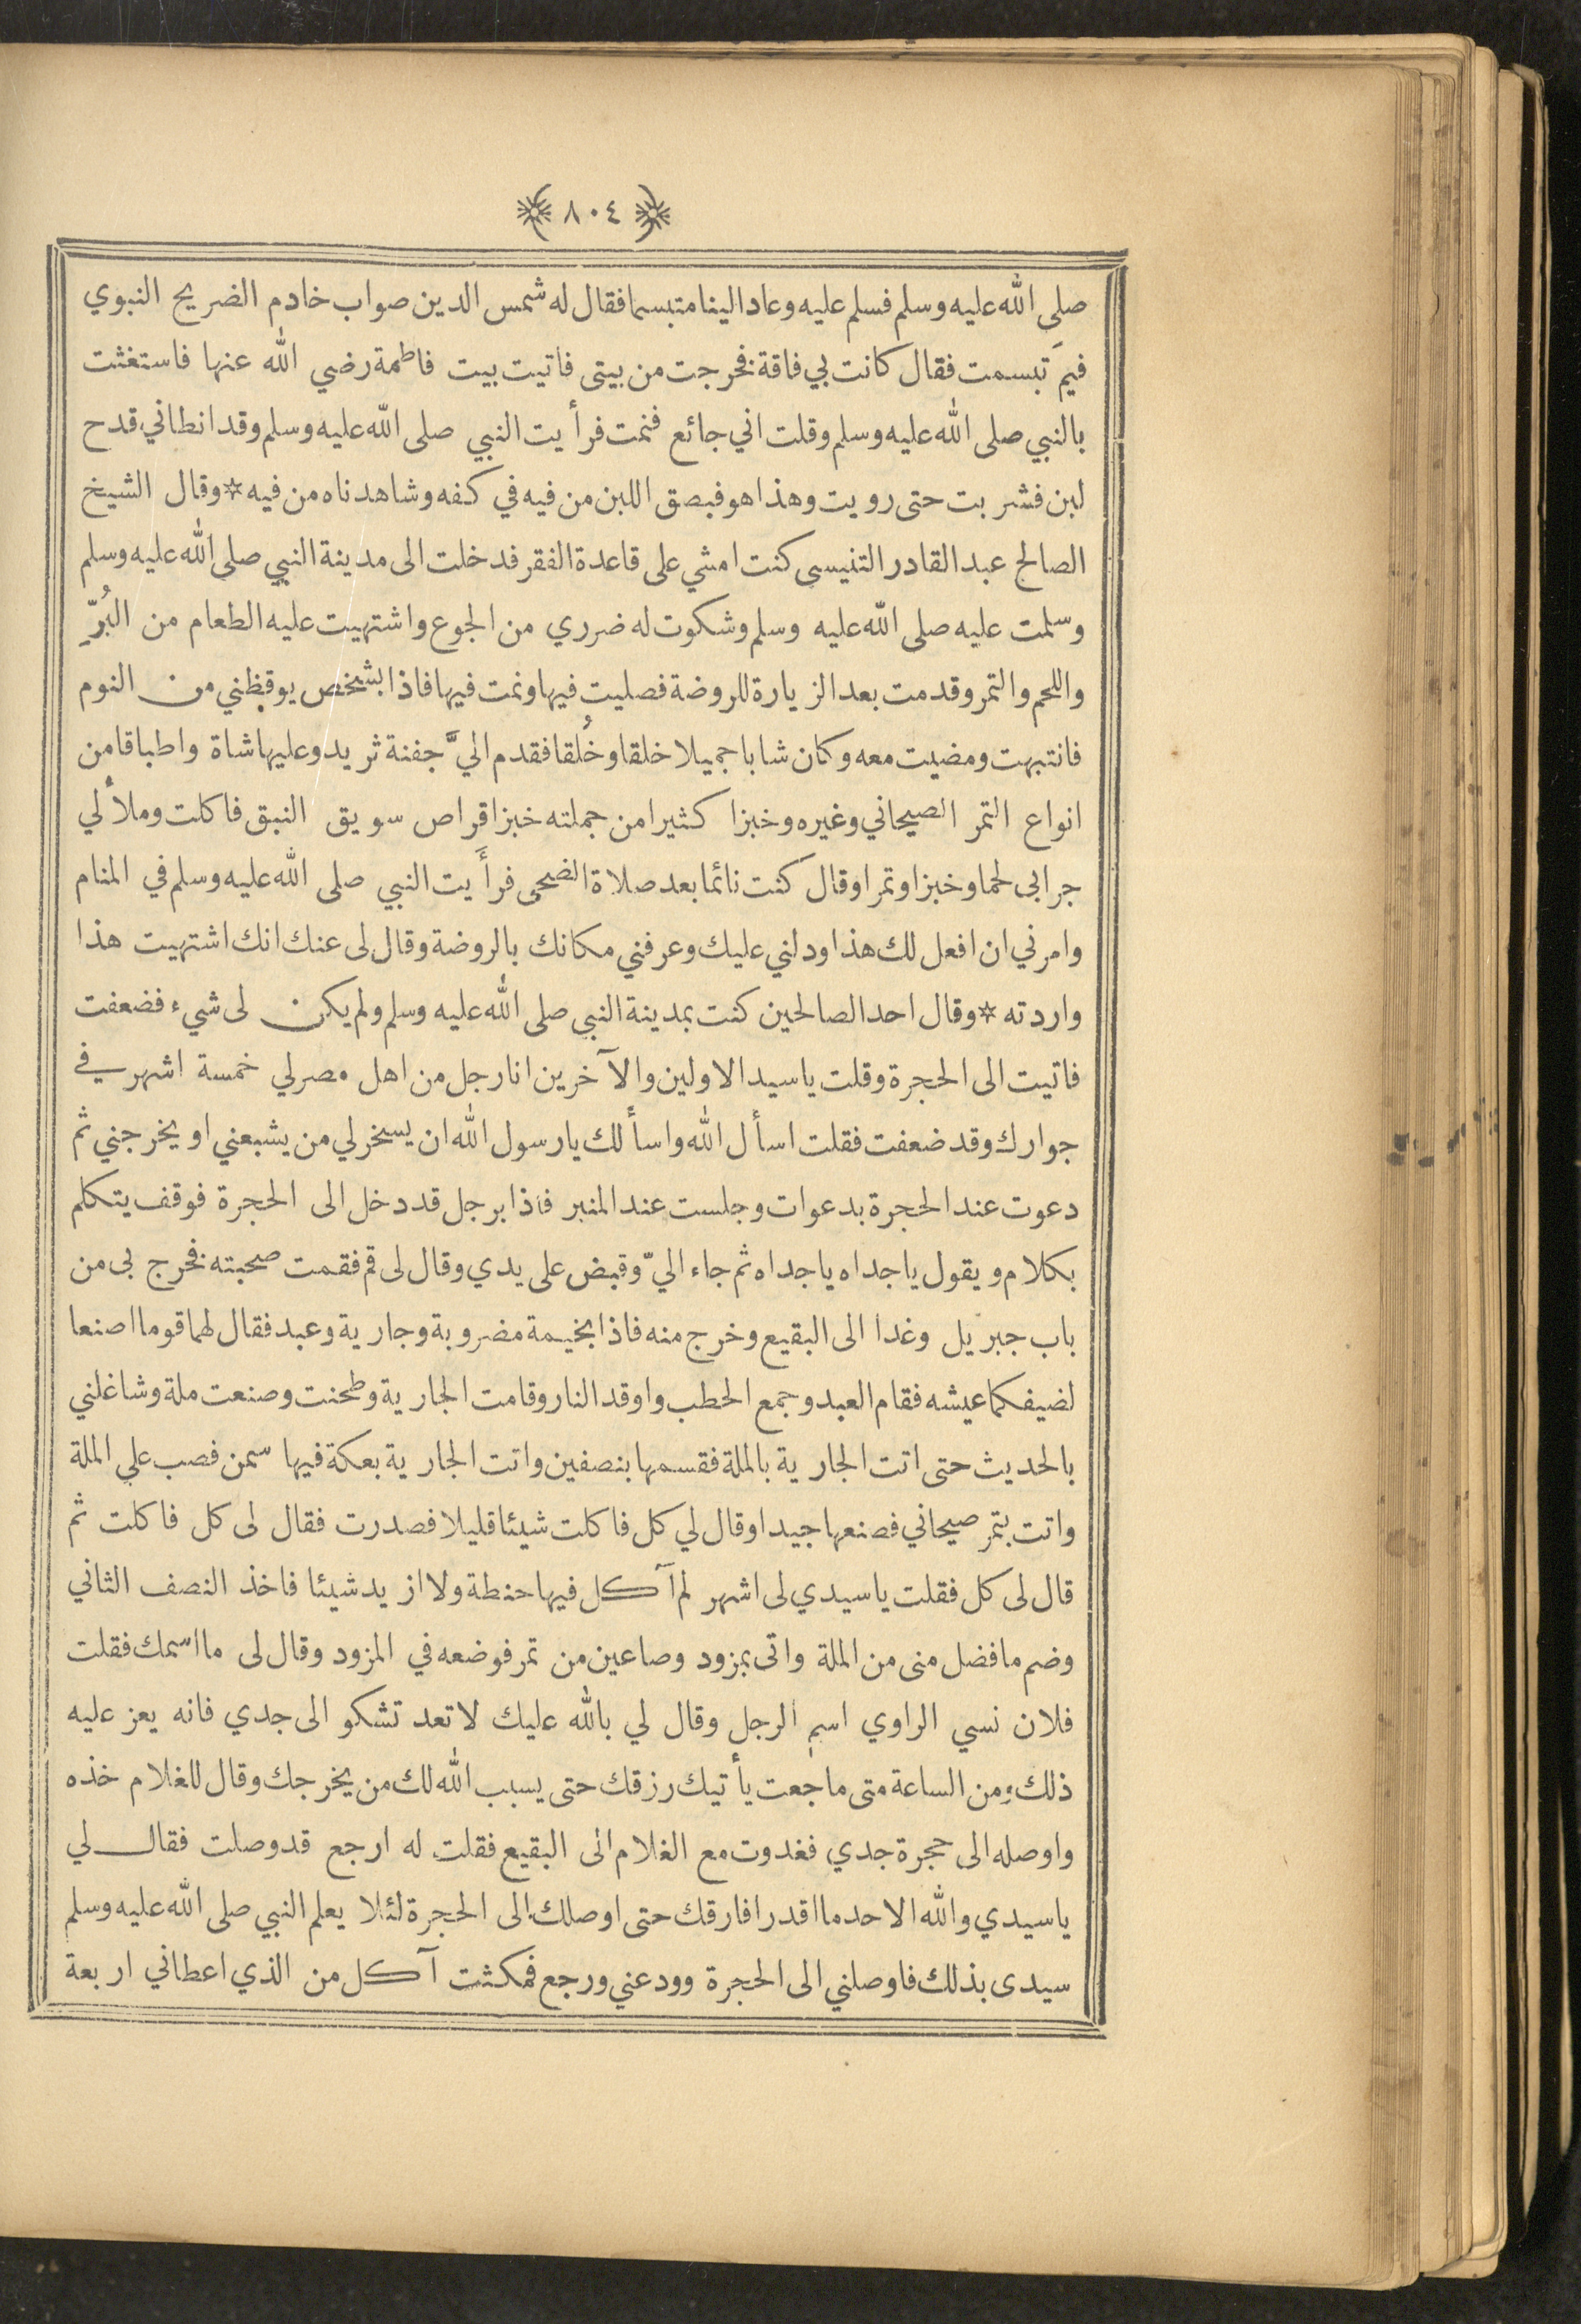 ٨٠٤
صلى الله عليه وسلم فسلم عليه وعاد الينا متبسما فقال له شمس الدين صواب خادم الضريح النبوي
فيمَ تبسمت فقال كانت بي فاقة فخرجت من بيتى فاتيت بيت فاطمة رضي الله عنها فاستغثت
بالنبي صلى الله عليه وسلم وقلت اني جائع فنمت فرأيت النبي صلى الله عليه وسلم وقد انطاني قدح
لبن فشربت حتى رويت وهذا هو فبصق اللبن من فيه في كفه وشاهدناه من فيه * وقال الشيخ
الصالح عبد القادر التنيسى كنت امشي على قاعدة الفقر فدخلت الى مدينة النبي صلى الله عليه وسلم
وسلمت عليه صلى الله عليه وسلم وشكوت له ضرري من الجوع واشتهيت عليه الطعام من البُرِّ
واللحم والتمر وقدمت بعد الزيارة للروضة فصليت فيها ونمت فيها فاذا بشخص يوقظني من النوم
فانتبهت ومضيت معه وكان شابا جميلا خلقا وخُلقا فقدم اليَّ جفنة ثريد وعليها شاة واطباقا من
انواع التمر الصيحاني وغيره وخبزا كثيرا من جملته خبز اقراص سويق النبق فاكلت وملأ لي
جرابى لحما وخبزا وتمرا وقال كنت نائما بعد صلاة الضحى فرأَيت النبي صلى الله عليه وسلم في المنام
وامرني ان افعل لك هذا ودلني عليك وعرفني مكانك بالروضة وقال لى عنك انك اشتهيت هذا
واردته * وقال احد الصالحين كنت بمدينة النبي صلى الله عليه وسلم ولم يكن لى شيء فضعفت
فاتيت الى الحجرة وقلت يا سيد الاولين والآخرين انا رجل من اهل مصر لي خمسة اشهر في
جوارك وقد ضعفت فقلت اسأل الله واسألك يا رسول الله ان يسخر لي من يشبعني او يخرجني ثم
دعوت عند الحجرة بدعوات وجلست عند المنبر فاذا برجل قد دخل الى الحجرة فوقف يتكلم
بكلام ويقول يا جداه يا جداه ثم جاء اليّ وقبض على يدي وقال لى قم فقمت صحبته فخرج بى من
باب جبريل وغدا الى البقيع وخرج منه فاذا بخيمة مضروبة وجارية وعبد فقال لهما قوما اصنعا
لضيفكما عيشه فقام العبد وجمع الحطب واوقد النار وقامت الجارية وطحنت وصنعت ملة وشاغلني
بالحديث حتى اتت الجارية بالملة فقسمها بنصفين واتت الجارية بعكة فيها سمن فصب على الملة
واتت بتمر صيحاني فصنعها جيدا وقال لي كل فاكلت شيئا قليلا فصدرت فقال لى كل فاكلت ثم
قال لى كل فقلت يا سيدي لى اشهر لم آكل فيها حنطة ولا ازيد شيئا فاخذ النصف الثاني
وضم ما فضل منى من الملة واتى بمزود وصاعين من تمر فوضعه في المزود وقال لى ما اسمك فقلت
فلان نسي الراوي اسم الرجل وقال لي بالله عليك لا تعد تشكو الى جدي فانه يعز عليه
ذلك ومن الساعة متى ما جعت يأتيك رزقك حتى يسبب الله لك من يخرجك وقال للغلام خذه
واوصله الى حجرة جدي فغدوت مع الغلام الى البقيع فقلت له ارجع قد وصلت فقال لي
يا سيدي والله الاحد ما اقدر افارقك حتى اوصلك الى الحجرة لئلا يعلم النبي صلى الله عليه وسلم
سيدى بذلك فاوصلني الى الحجرة وودعني ورجع فمكثت آكل من الذي اعطاني اربعة